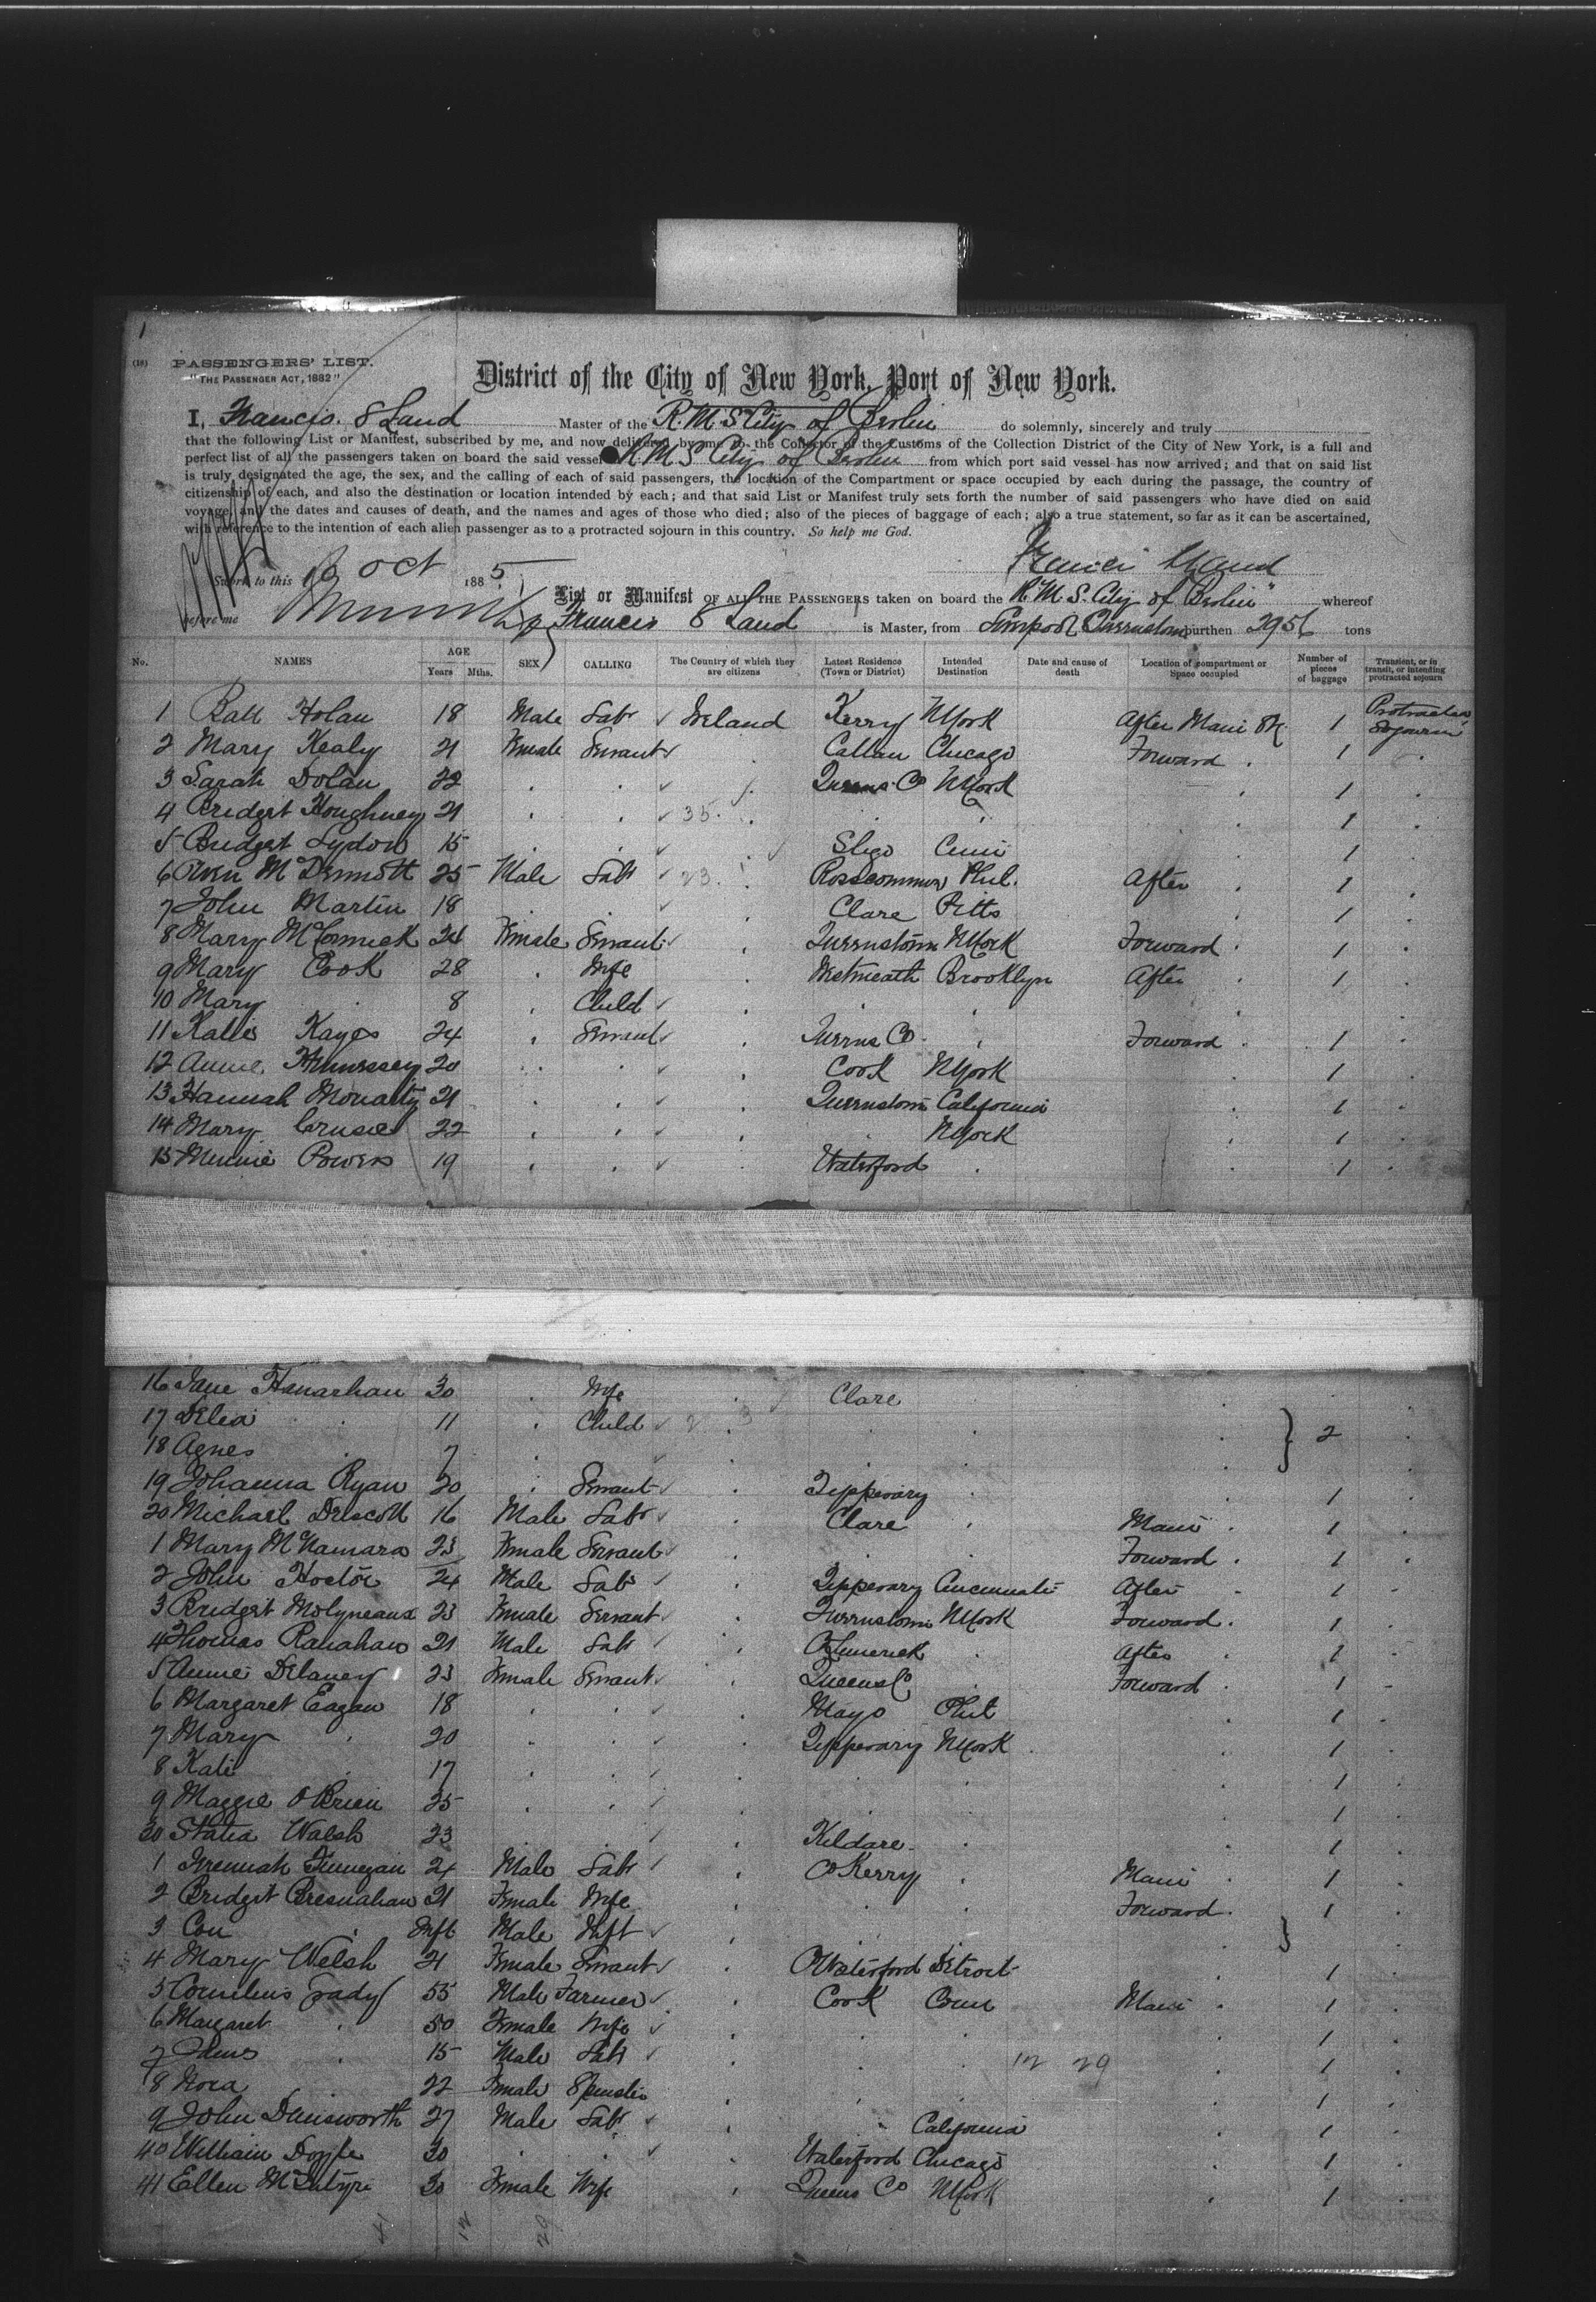 1
(18) PASSENGERS' LIST.
"THE PASSENGER ACT, 1882"
District of the City of New York, Port of New York.
I, Francis S Land Master of the R.M.S City of Berlin do solemnly, sincerely and truly
that the following List or Manifest, subscribed by me, and now delivered by me to the Collector of the Customs of the Collection District of the City of New York, is a full and
perfect list of all the passengers taken on board the said vessel R M S City of Berlin from which port said vessel has now arrived; and that on said list
is truly designated the age, the sex, and the calling of each of said passengers, the location of the Compartment or space occupied by each during the passage, the country of
citizenship of each, and also the destination or location intended by each; and that said List or Manifest truly sets forth the number of said passengers who have died on said
voyage, and the dates and causes of death, and the names and ages of those who died; also of the pieces of baggage of each; also a true statement, so far as it can be ascertained,
with reference to the intention of each alien passenger as to a protracted sojourn in this country. So help me God.
Francis S Land
Sworn to this 10 Oct 1885
before me
List or Manifest OF ALL THE PASSENGERS taken on board the R.M.S. City of Berlin" whereof
Francis S Land is Master, from Liverpool & Queenstown burthen 2956 tons
No. NAMES AGE Years Mths. SEX CALLING The Country of which they are citizens Latest Residence (Town or District) Intended Destination Date and cause of death Location of compartment or Space occupied Number of pieces of baggage Transient, or in transit, or intending protracted sojourn
1 Holan 18 Male Labr Ireland Kerry NYork After Main 1 Protracted Sojourn
2 Mary Kealy 21 Female Servant Callan Chicago Forward 1
3 Sarah Dolan 22 Queens Co NYork 1
4 Bridget Houghney 21 35 1
5 Bridget Lydon 15 Sligo 1
6 Owen McDermott 25 Male Labr 23 Rosscommon Phil. After 1
7 John Martin 18 Clare Pitts 1
8 Mary McCormick 24 Female Servant Queenstown NYork Forward 1
9 Mary Cook 28 Wife Westmeath Brooklyn After 1
10 Mary 8 Child
11 Kayes 24 Servant Queens Co Forward 1
12 Annie Hennessey 20 Cork NYork 1
13 Hannah Moriarty 21 Queenstown California 1
14 Mary 22 NYork 1
15 Minnie Powers 19 Waterford 1
16 Jane Hanarhan 30 Wife Clare
17 Delia 11 Child 2 3 2
18 Agnes 7
19 Johanna Ryan 20 Servant Tipperary 1
20 Michael Driscoll 16 Male Labr Clare Main 1
1 Mary McNamara 23 Female Servant Forward 1
2 John Hoctor 24 Male Labr Tipperary Cincinnati After 1
3 Bridget Molyneaux 23 Female Servant Queenstown NYork Forward 1
4 Thomas Ranahan 21 Male Labr Limerick After 1
5 Annie Delaney 23 Female Servant Queens Co Forward 1
6 Margaret Eagan 18 Mayo Phil 1
7 Mary 20 Tipperary NYork 1
8 Kate 17 1
9 Maggie OBrien 25 1
30 Statia Walsh 23 Kildare 1
1 Jeremiah Finnegan 24 Male Labr Co Kerry Main 1
2 Bridget Bresnahan 21 Female Wife Forward 1
3 Con Inft Male Inft
4 Mary Welsh 21 Female Servant Waterford Detroit 1
5 Cornelius Grady 55 Male Farmer Cork Conn Main 1
6 Margaret 50 Female Wife 1
7 James 15 Male Labr 12 29 1
8 Nora 22 Female Spinster 1
9 John Dainsworth 27 Male Labr California 1
40 William Doyle 30 Waterford Chicago 1
41 Ellen McIntyre 30 Female Wife Queens Co NYork 1
41 12 29